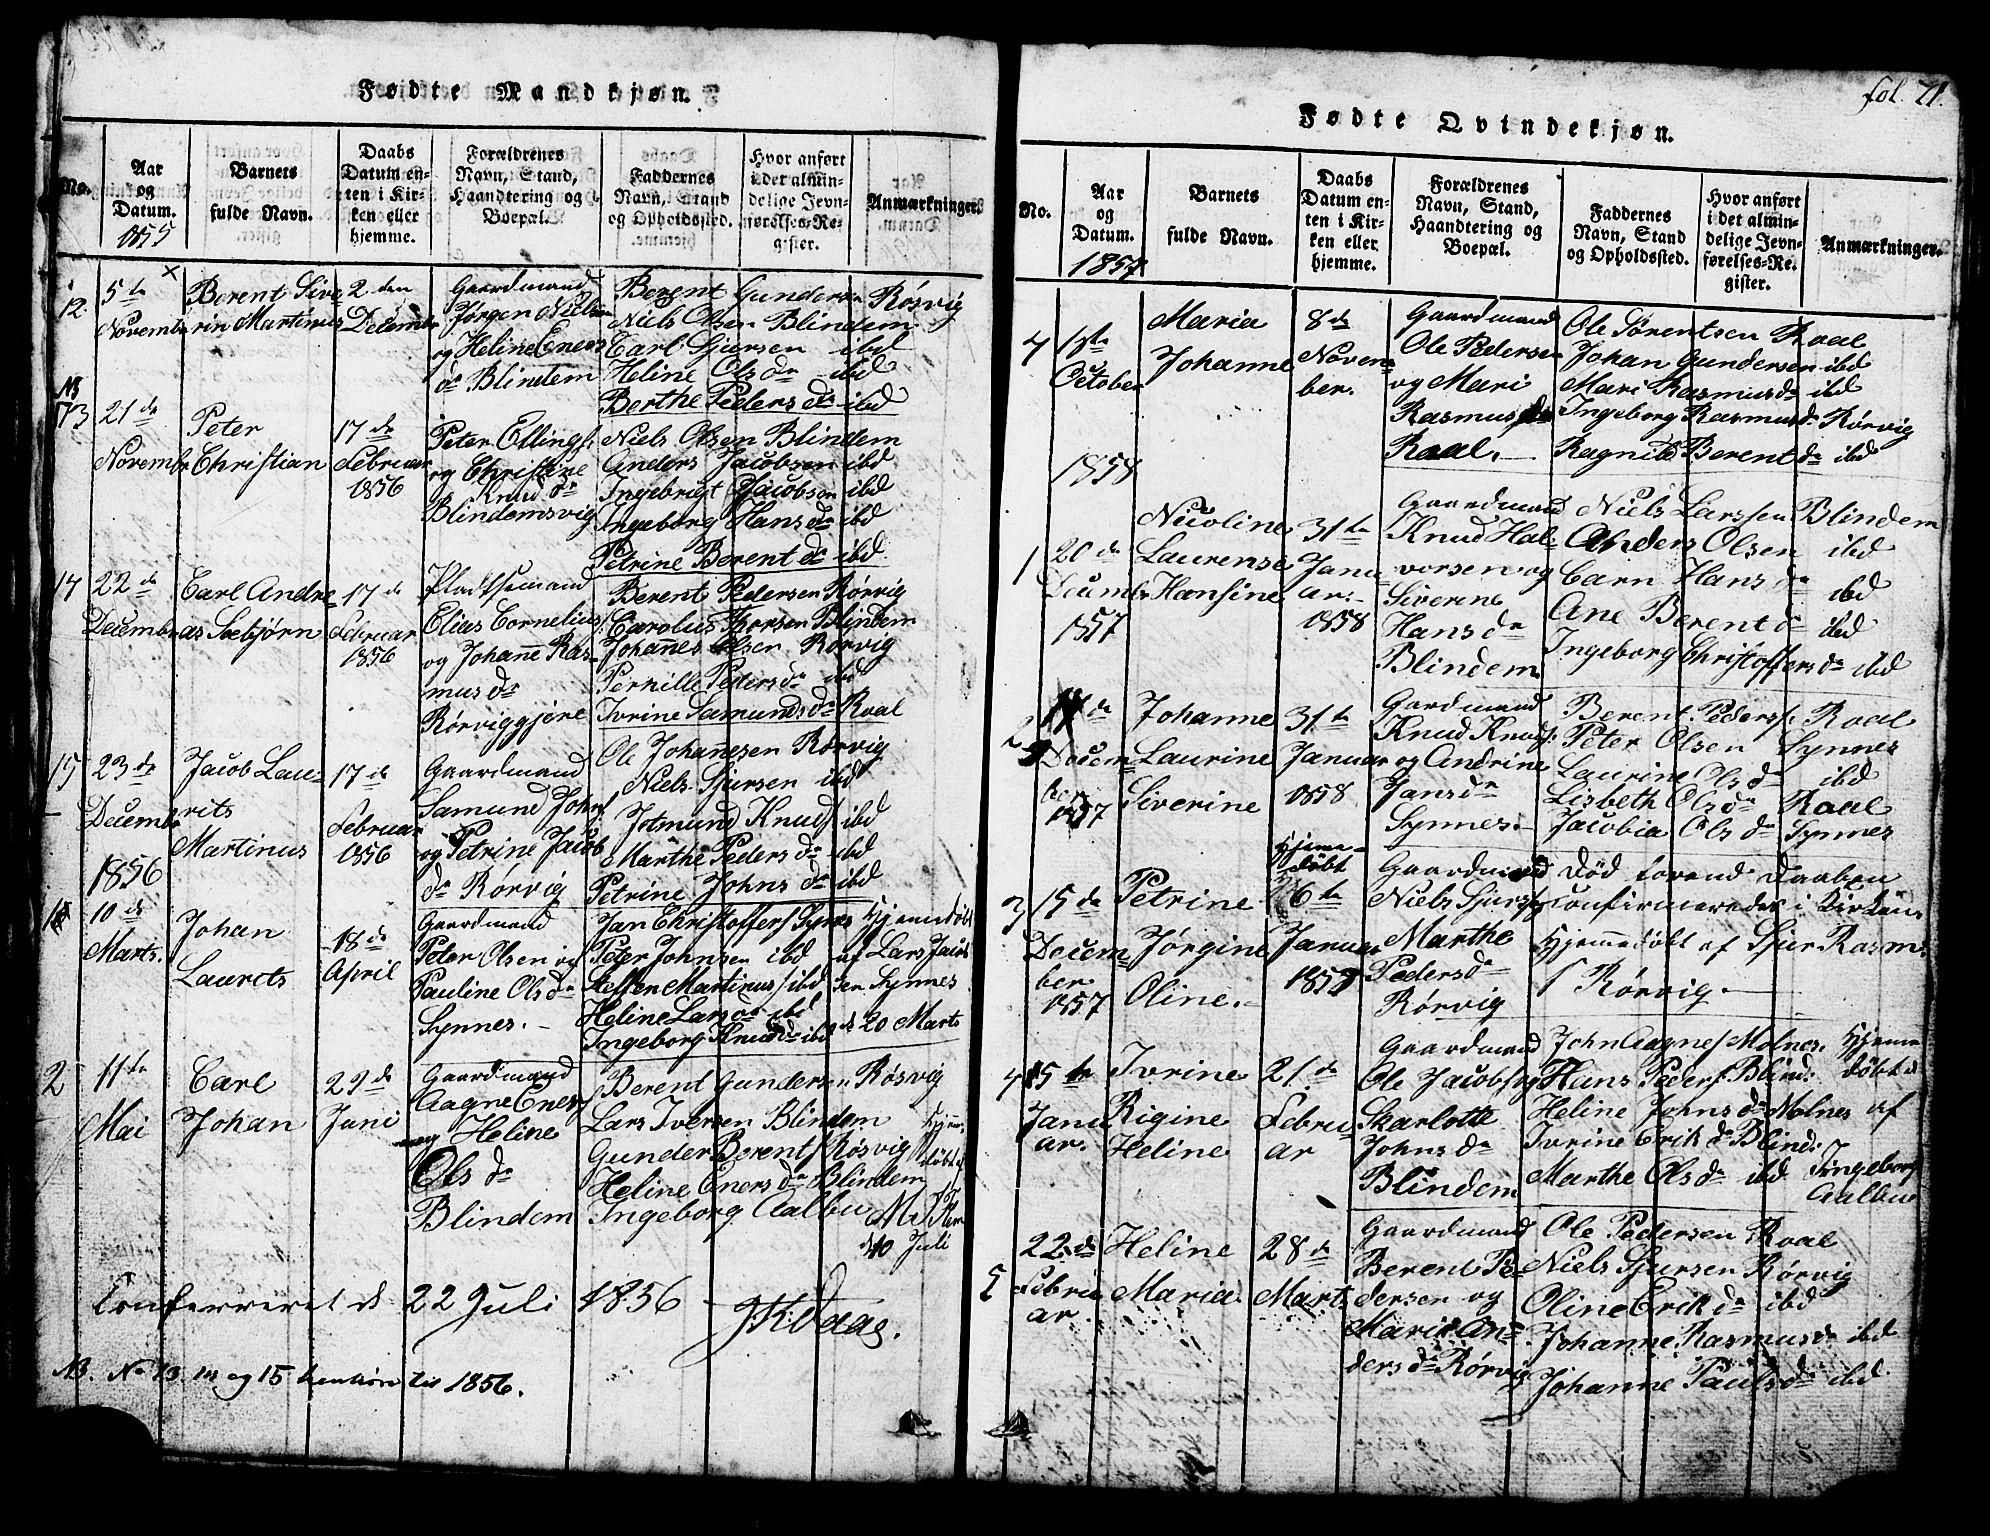 fol. 71.
Fødte Mandkjøn.
No.
Aar og Datum. 1855
Barnets fulde Navn.
Daabs Datum enten i Kirken eller hjemme.
Forældrenes Navn, Stand, Haandtering og Boepæl.
Faddernes Navn, Stand og Opholdssted.
Hvor anført i det almindelige Jevnførelses-Register.
Anmærkninger.
12. 5te Novembr
Berent Siverin Martinus
2den Decembr
Gaardmand
Jørgen Niels
og Heline Eners
dr Blindem
Berent Gundersen Røsvig
Niels Olsen Blindem
Carl Sjursen ibd
Heline Ols dr ibd
Berthe Peders dr ibd
NB
13 21de Novembr
Peter Christian
17de Februar 1856
Peter Ellings
og Christine
Knud dr
Blindemsvig
Niels Olsen Blindem
Anders Jacobsen ibd
Ingebrigt Jacobsen ibd
Ingeborg Hans dr ibd
Petrine Berent dr ibd
14 22de Decembr
Carl Andreas Sæbjørn
17de Februar 1856
Pladtsemand
Elias Cornelius
og Johane Rasmus dr
Rørviggjere
Berent Pedersen Rørvig
Carolus Thorsen Blindem
Johanes Olsen Rørvig
Pernille Peders dr ibd
Ivrine Samunds dr Roal
15 23de Decembr
Jacob Laurits Martinus
17de Februar 1856
Gaardmand
Samund Johns
og Petrine Jacob
dr Rørvig
Ole Johanesen Rørvig
Niels Sjursen ibd
Jotmund Knuds ibd
Marthe Peders dr ibd
Petrine Johns dr ibd
1856
10de Marts.
Johan Laurets
18de April
Gaardmand
Peter Olsen og
Pauline Ols dr
Synnes.
Jan Christoffers Synes
Peter Johnsen ibd
Steffen Martinus ibd
Heline Lars dr ibd
Ingeborg Knuds dr ibd
Hjemmedøbt
af Lars Jacobsen Synnes
d 20 Marts
2 11te Mai
Carl Johan
29de Juni
Gaardmand
Aagne Eners
og Heline
Ols dr
Blindem
Berent Gundersen Røsvig
Lars Iversen Blindem
Gunder Berents Røsvig
Heline Eners dr Blindem
Ingeborg Aalbu
Hjemdøbt af
10 Juli
Conferreret d 22 Juli 1856
NB. No 13 14 og 15 henhøre til 1856.
Fødte Qvindekjøn.
No.
Aar og Datum. 1857
Barnets fulde Navn.
Daabs Datum enten i Kirken eller hjemme.
Forældrenes Navn, Stand, Haandtering og Boepæl.
Faddernes Navn, Stand og Opholdssted.
Hvor anført i det almindelige Jevnførelses-Register.
Anmærkninger.
October
Maria Johanne
8de November.
Gaardmand
Ole Pedersen
og Mari
Rasmus dr
Roal.
Ole Sørentsen Roal
Johan Gundersen ibd
Mari Rasmus dr ibd
Ingeborg Rasmus dr Rørvig
Ragnild Berent dr ibd
1858
1 20de Decembr 1857
Nicoline Laurense Hansine
31te Januar. 1858
Gaardmand
Knud Halvorsen og
Siverine
Hans dr
Blindem
Niels Larssen Blindem
Anders Olsen ibd
Carn Hans dr ibd
Ane Berent dr ibd
Ingeborg Christoffers dr ibd
2 December 1857
Johanne Laurine Siverine
31te Januar 1858
Gardmand
Knud Knuds
og Andrine
Jans dr
Synnes.
Berent Peders Roal
Peter Olsen Synnes
Laurine Ols dr ibd
Lisbeth Ols dr Roal
Jacobia Ols dr Synnes
3 15de December 1857
Petrine Jørgine Oline.
Hjemedøbt 6te Januar
Gaardmand
Niels Sjurs
Marthe
Peders dr
Rørvig
Død forend Daaben
confirmeredes i Kirken
Hjemmedøbt af Sjur Rasmus
Rørvig.
4 Januar.
Ivrine Rigine Heline
21de Februar
Gaardmand
Ole Jacobs og
Skarlotte
Johns dr
Blindem
John Aagnes Molnes.
Hans Peders Blind:
Heline Johns dr Molnes
Ivrine Erik dr Blind:
Marthe Ols dr ibd
Hjemmedøbt
af
Ingeborg
Aalbu
5 22de Februar.
Heline Maria
28de Mart
Gaardmand
Berent Pedersen og
Marie Anders dr Rørvig
Ole Pedersen Roal
Niels Sjursen Rørvig
Oline Erik dr ibd
Johanne Rasmus dr ibd
Johanne Pauls dr ibd